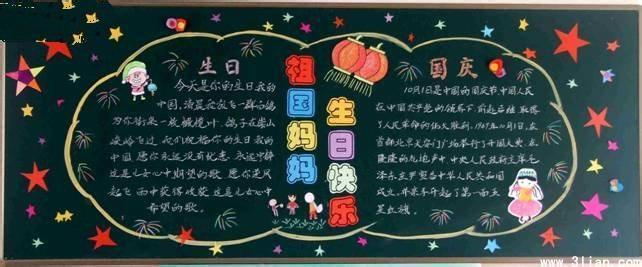 生日
今天是你的生日我的
中国，清晨我放飞一群白鸽
为你衔来一枚橄榄叶，鸽子在崇山
峻岭飞过 我们祝福你的生日我的
中国 愿你永远没有忧患 永远宁静
这是儿女心中期望的歌 愿你逆风
起飞 雨中获得收获 这是儿女心中
希望的歌。
祖国妈妈
生日快乐
国庆
10月1日是中国的国庆节 中国人民
在中国共产党的领导下，前赴后继 取得
了人民革命的伟大胜利，1949年10月1日，在
首都北京天安门广场举行了开国大典，在
隆隆的礼炮声中 中央人民政府主席毛
泽东庄严宣告中华人民共和国
成立，并亲手升起了第一面五
星红旗。
www.3lian.com